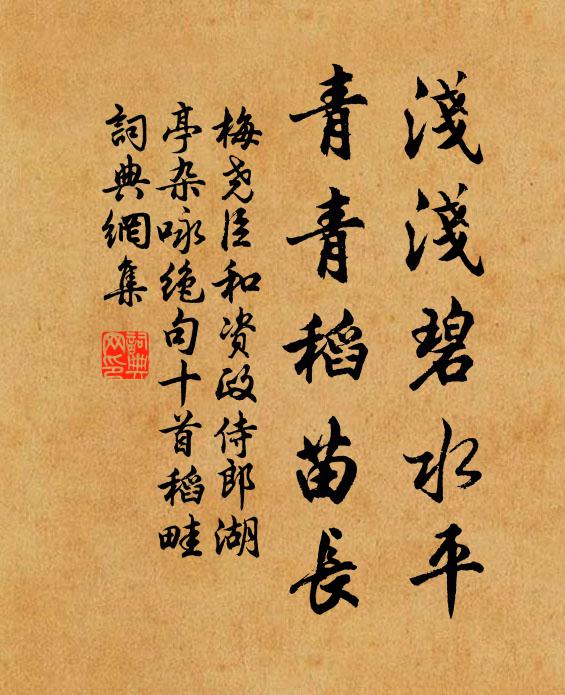 淺淺碧水平
青青稻苗長
梅尧臣和资政侍郎湖
亭杂咏绝句十首稻畦
詞典網集
詞典
网印